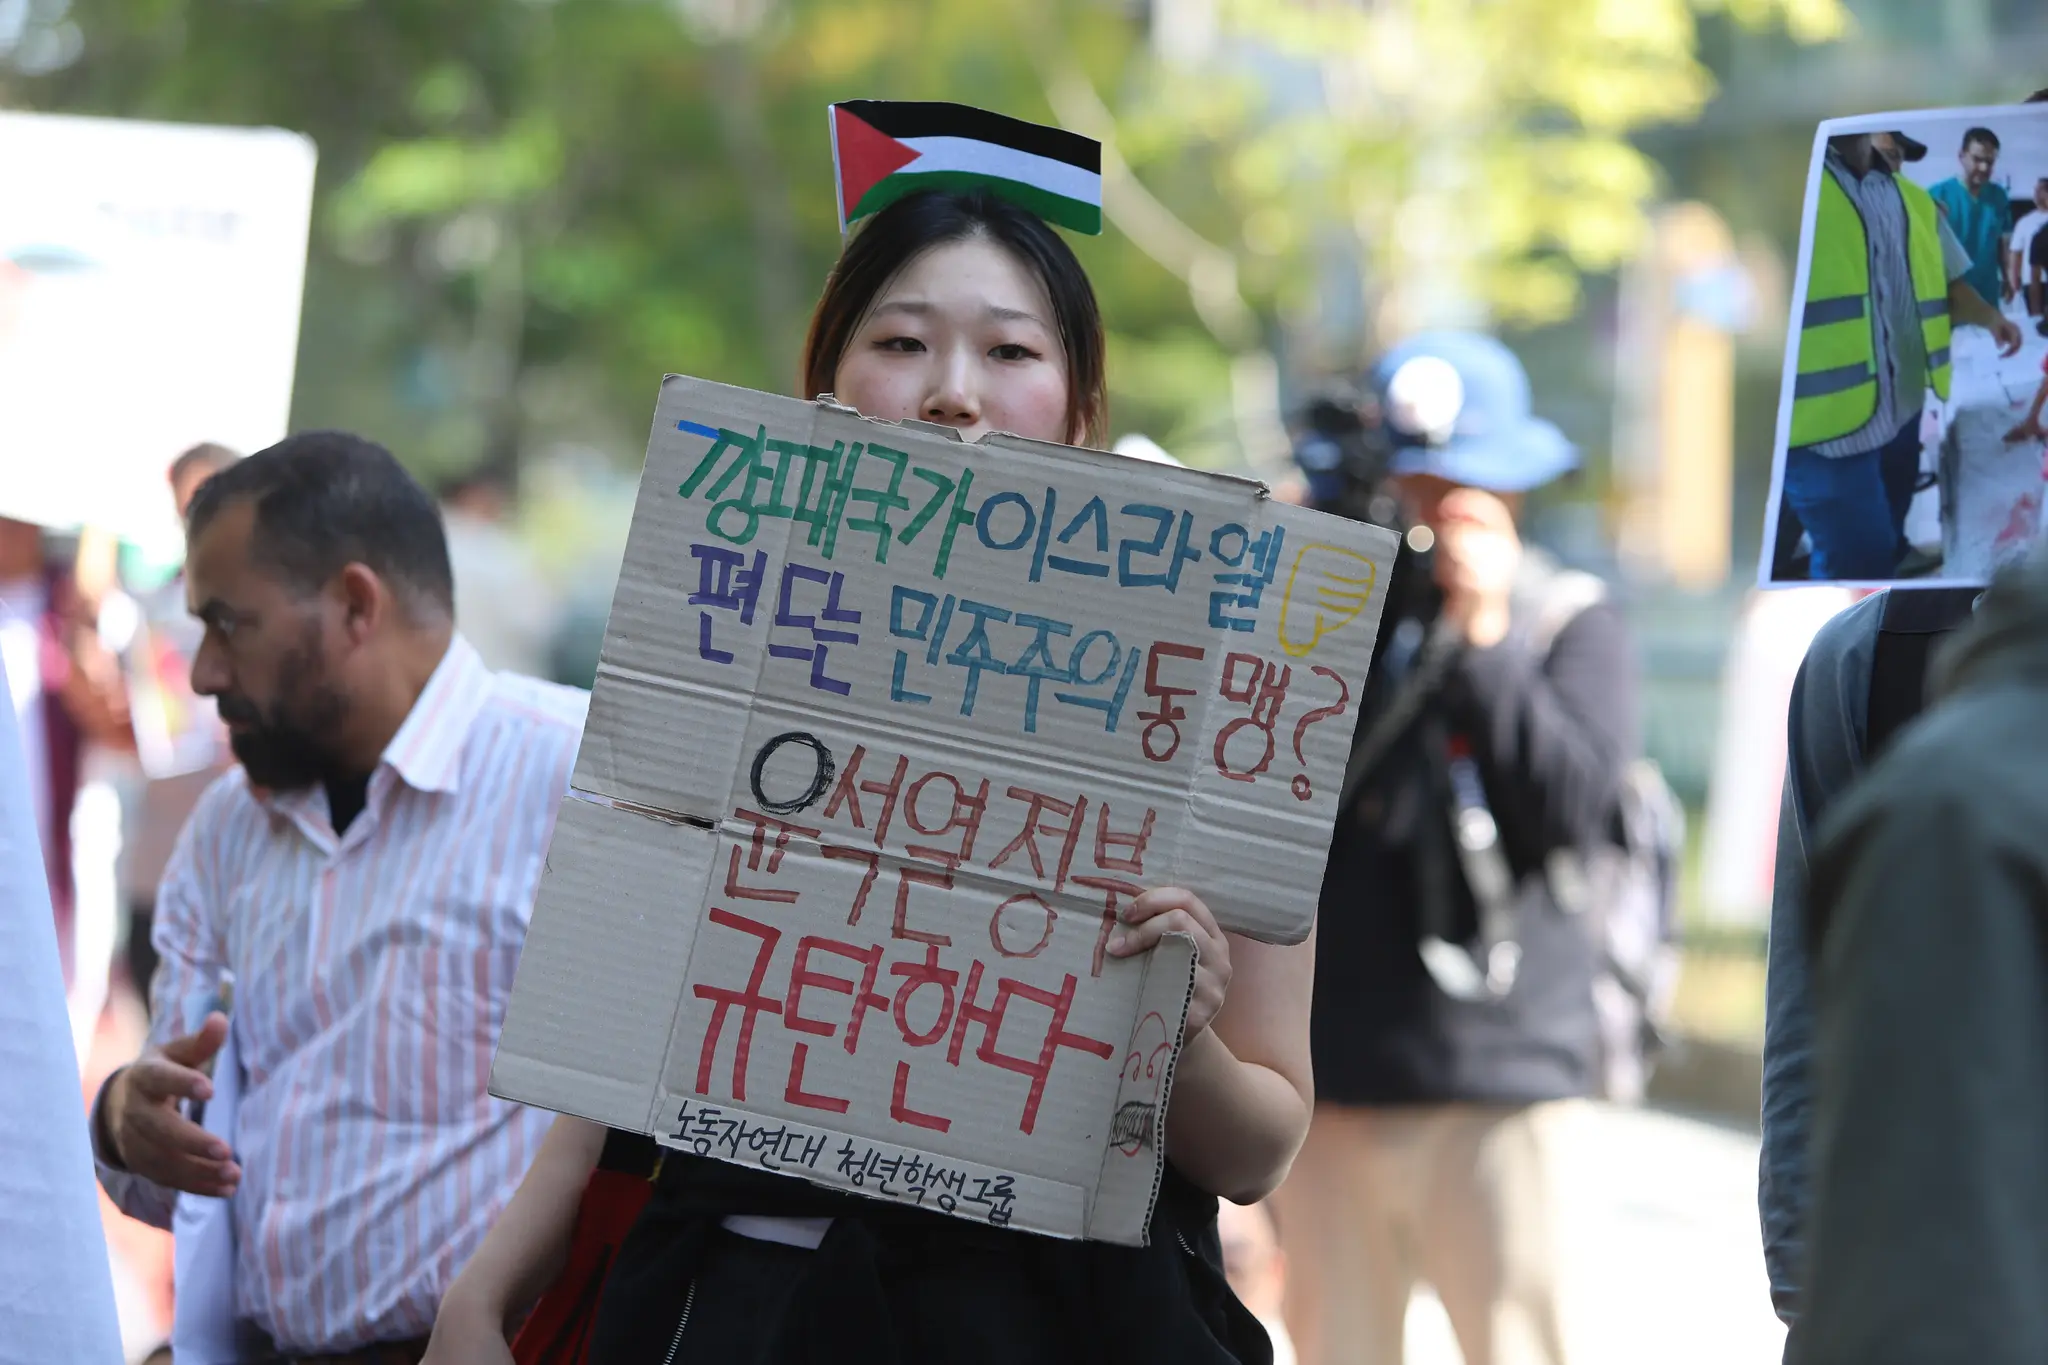 깡패국가 이스라엘
편드는 민주주의 동맹?
윤석열 정부
규탄한다
노동자연대 청년학생그룹